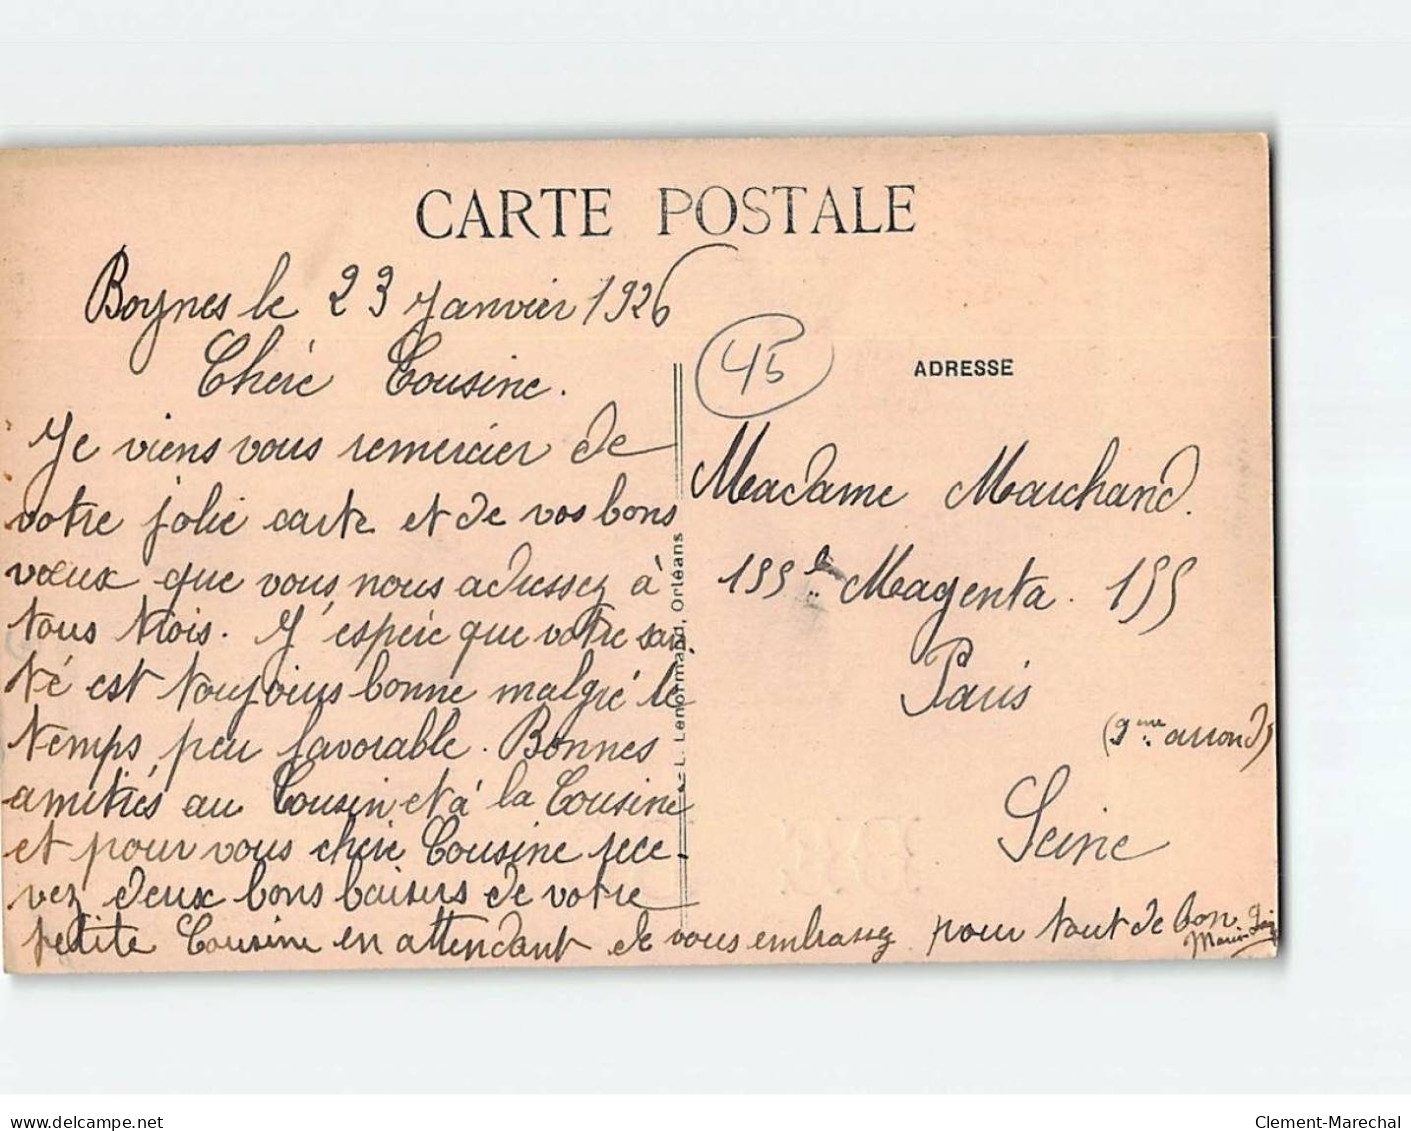 CARTE POSTALE
Boynes le 23 Janvier 1926
Chère Cousine.
Je viens vous remercier de
votre jolie carte et de vos bons
vœux que vous nous adressez à
tous trois. J'espère que votre san
té est toujours bonne malgré le
temps peu favorable. Bonnes
amitiés au Cousin et à la Cousine
et pour vous chère Cousine rece-
vez deux bons baisers de votre
petite Cousine en attendant de vous embrassez pour tout de bon
45
ADRESSE
Madame Marchand.
155 b. Magenta. 155
Paris
(9eme arrond)
Seine
L. Lenormand, Orléans
delcampe.net
Clement-Marechal